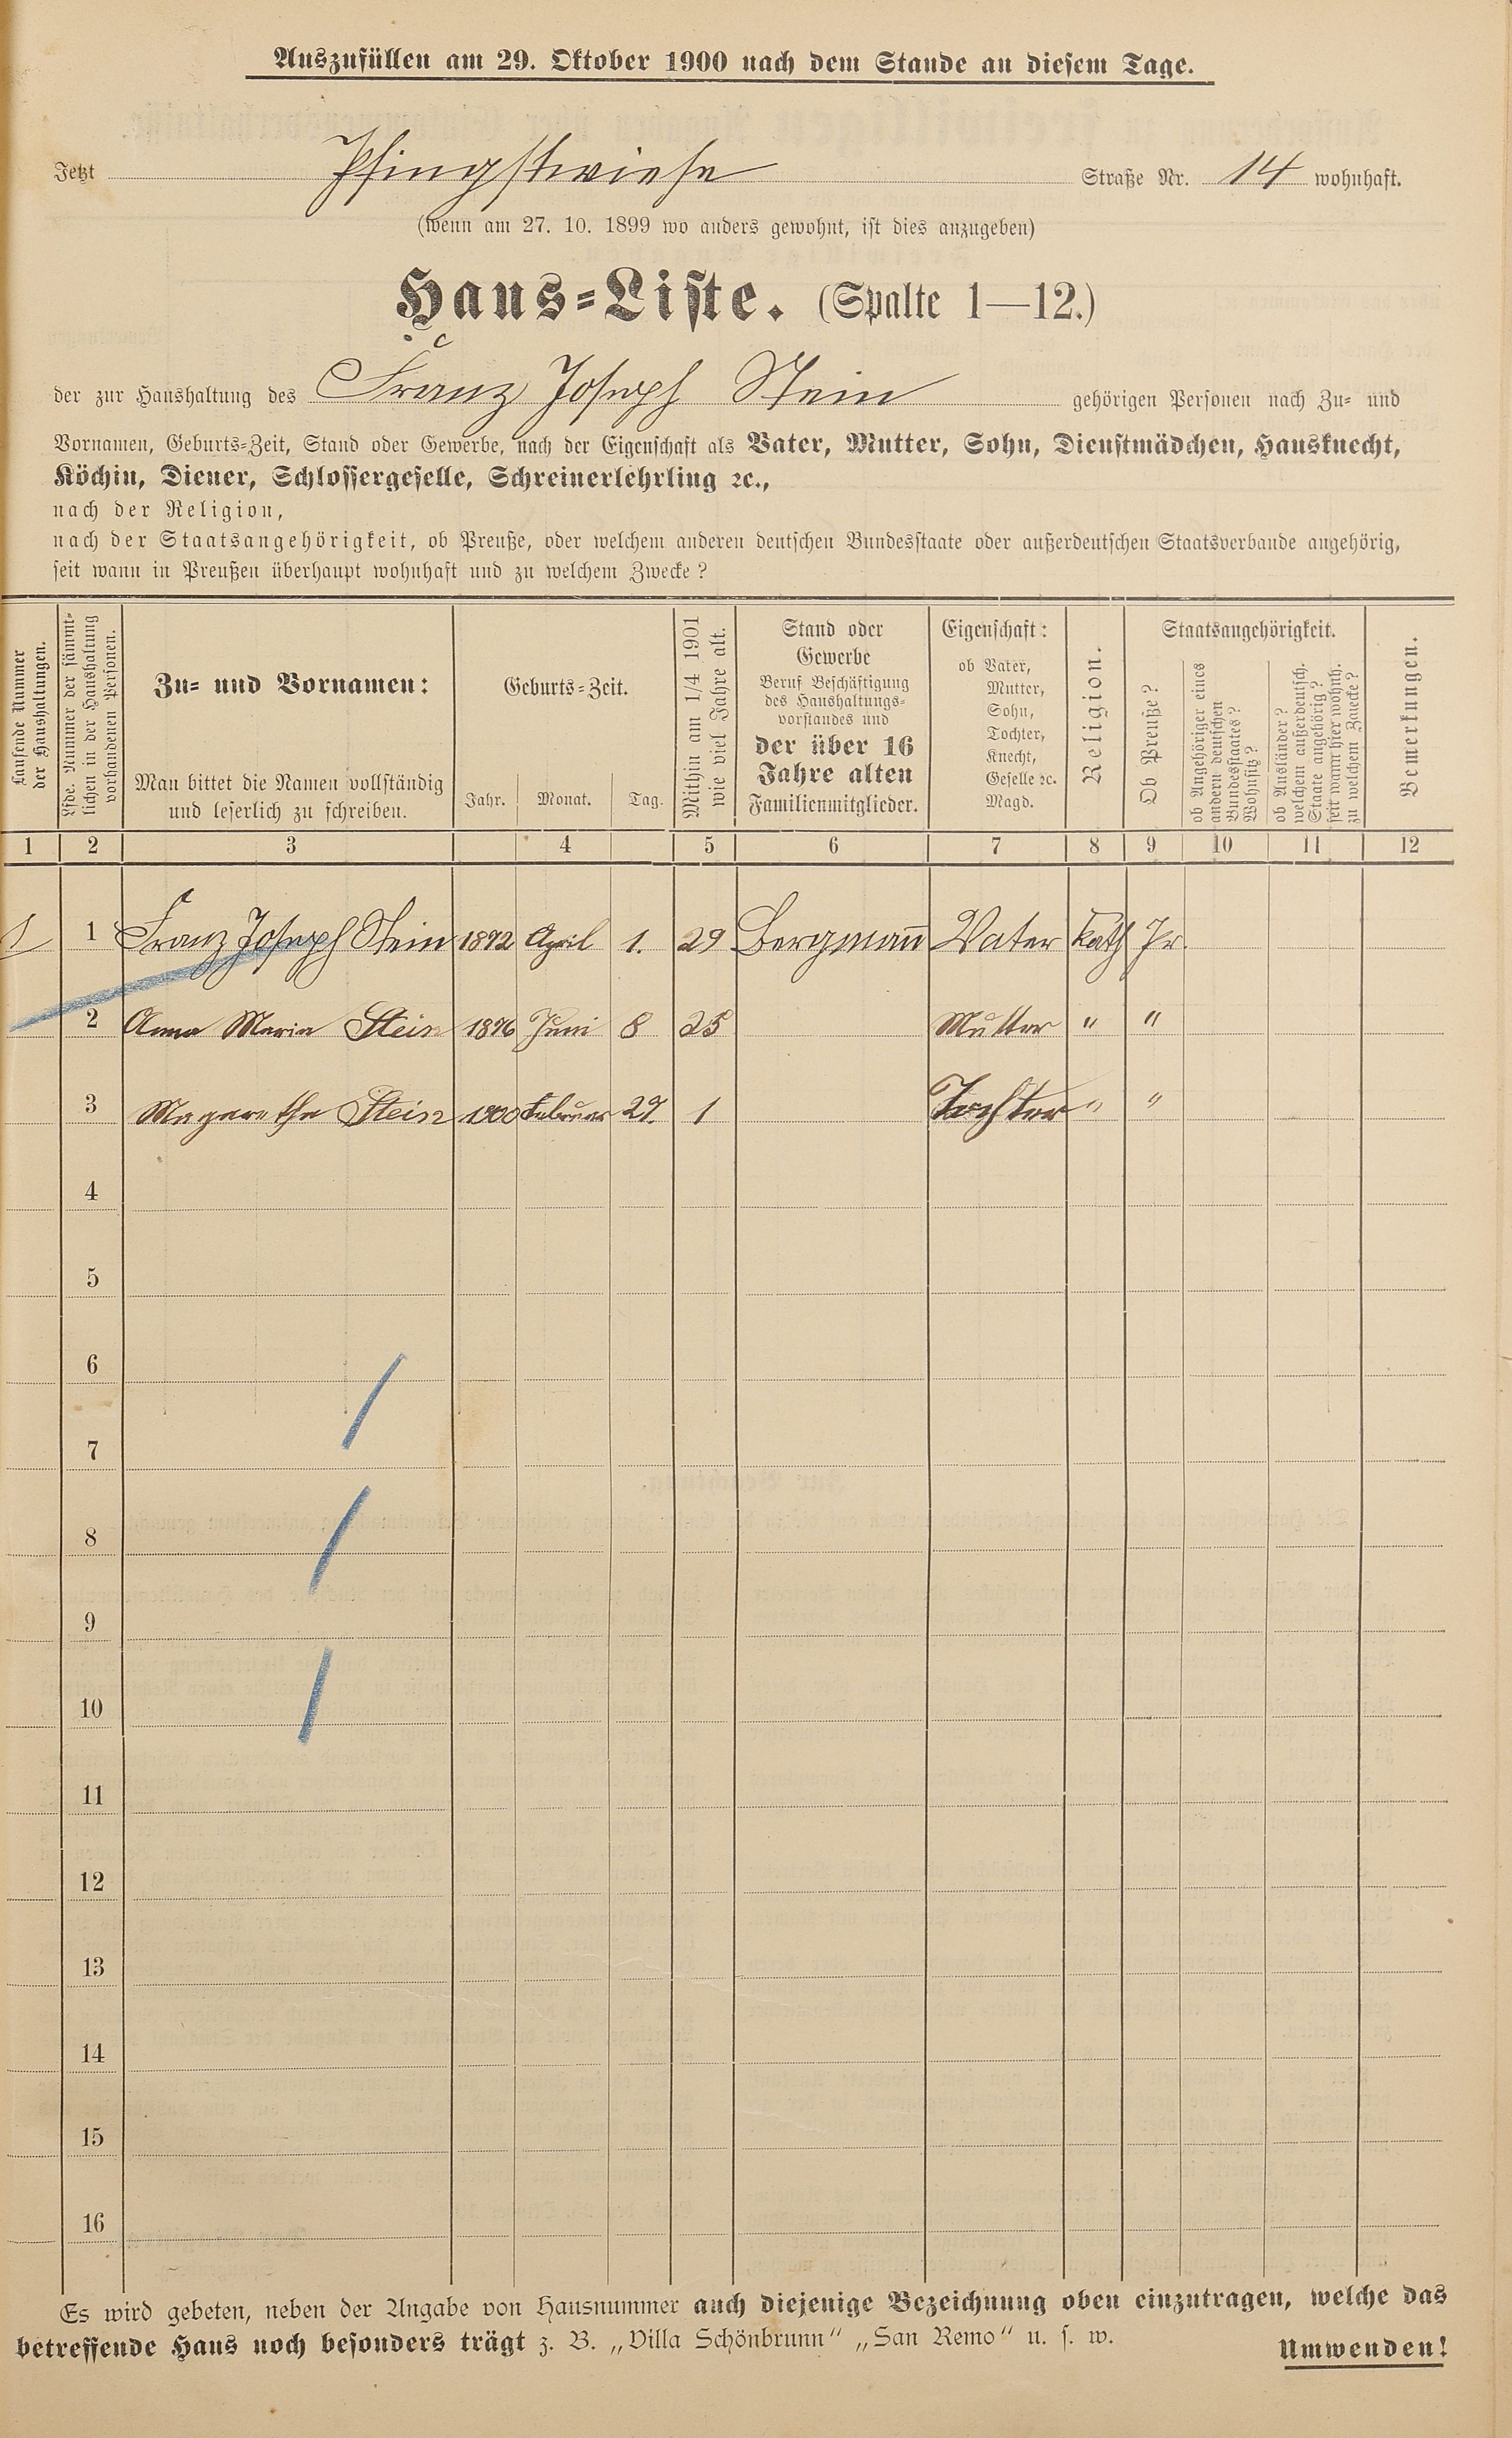 Auszufüllen am 29. Oktober 1900 nach dem Stande an diesem Tage.
Jetzt Pfingstwiese Straße Nr. 14 wohnhaft.
(wenn am 27. 10. 1899 wo anders gewohnt, ist dies anzugeben)
Haus-Liste. (Spalte 1—12.)
der zur Haushaltung des Franz Joseph Stein gehörigen Personen nach Zu- und
Vornamen, Geburts-Zeit, Stand oder Gewerbe, nach der Eigenschaft als Vater, Mutter, Sohn, Dienstmädchen, Hausknecht,
Köchin, Diener, Schlossergeselle, Schreinerlehrling ꝛc.,
nach der Religion,
nach der Staatsangehörigkeit, ob Preuße, oder welchem anderen deutschen Bundesstaate oder außerdeutschen Staatsverbande angehörig,
seit wann in Preußen überhaupt wohnhaft und zu welchem Zwecke?
Laufende Nummer
der Haushaltungen.
Lfde. Nummer der sämmt-
lichen in der Haushaltung
vorhandenen Personen.
Zu- und Vornamen:
Man bittet die Namen vollständig
und leserlich zu schreiben.
Geburts-Zeit.
Jahr. Monat. Tag.
Mithin am 1/4 1901
wie viel Jahre alt.
Stand oder
Gewerbe
Beruf Beschäftigung
des Haushaltungs-
vorstandes und
der über 16
Jahre alten
Familienmitglieder.
Eigenschaft:
ob Vater,
Mutter,
Sohn,
Tochter,
Knecht,
Geselle ꝛc.
Magd.
Religion.
Staatsangehörigkeit.
Ob Preuße?
ob Angehöriger eines
andern deutschen
Bundesstaates?
Wohnsitz?
ob Ausländer?
welchem außerdeutsch.
Staate angehörig?
seit wann hier wohnh.
zu welchem Zwecke?
Bemerkungen.
1 2 3 4 5 6 7 8 9 10 11 12
1 1 Franz Joseph Stein 1872 April 1. 29 Bergmann Vater Kath Pr.
2 Anna Maria Stein 1876 Juni 8 25 Mutter " "
3 Magarethe Stein 1900 Februar 27. 1 Tochter " "
4
5
6
7
8
9
10
11
12
13
14
15
16
Es wird gebeten, neben der Angabe von Hausnummer auch diejenige Bezeichnung oben einzutragen, welche das
betreffende Haus noch besonders trägt z. B. „Villa Schönbrunn" „San Remo" u. s. w.
Umwenden!